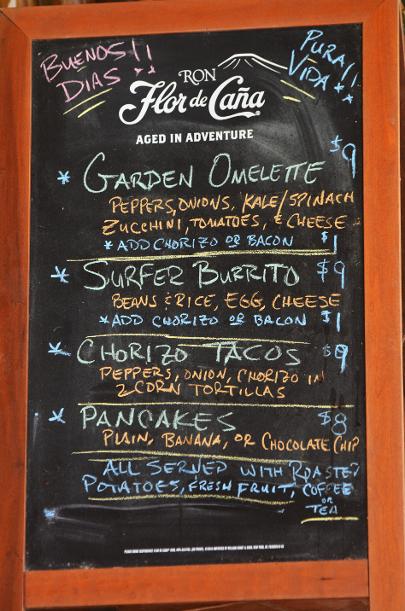 BUENOS!!
DIAS
PURA!!
VIDA
RON
Flor de Caña
AGED IN ADVENTURE
* GARDEN OMELETTE $9
PEPPERS, ONIONS, KALE/SPINACH
ZUCCHINI, TOMATOES, & CHEESE
* ADD CHORIZO OR BACON $1
* SURFER BURRITO $9
BEANS & RICE, EGG, CHEESE
* ADD CHORIZO OR BACON $1
* CHORIZO TACOS
PEPPERS, ONION, CHORIZO IN
2 CORN TORTILLAS
* PANCAKES $8
PLAIN, BANANA, OR CHOCOLATE CHIP
* ALL SERVED WITH ROASTED
POTATOES, FRESH FRUIT, COFFEE
OR
TEA